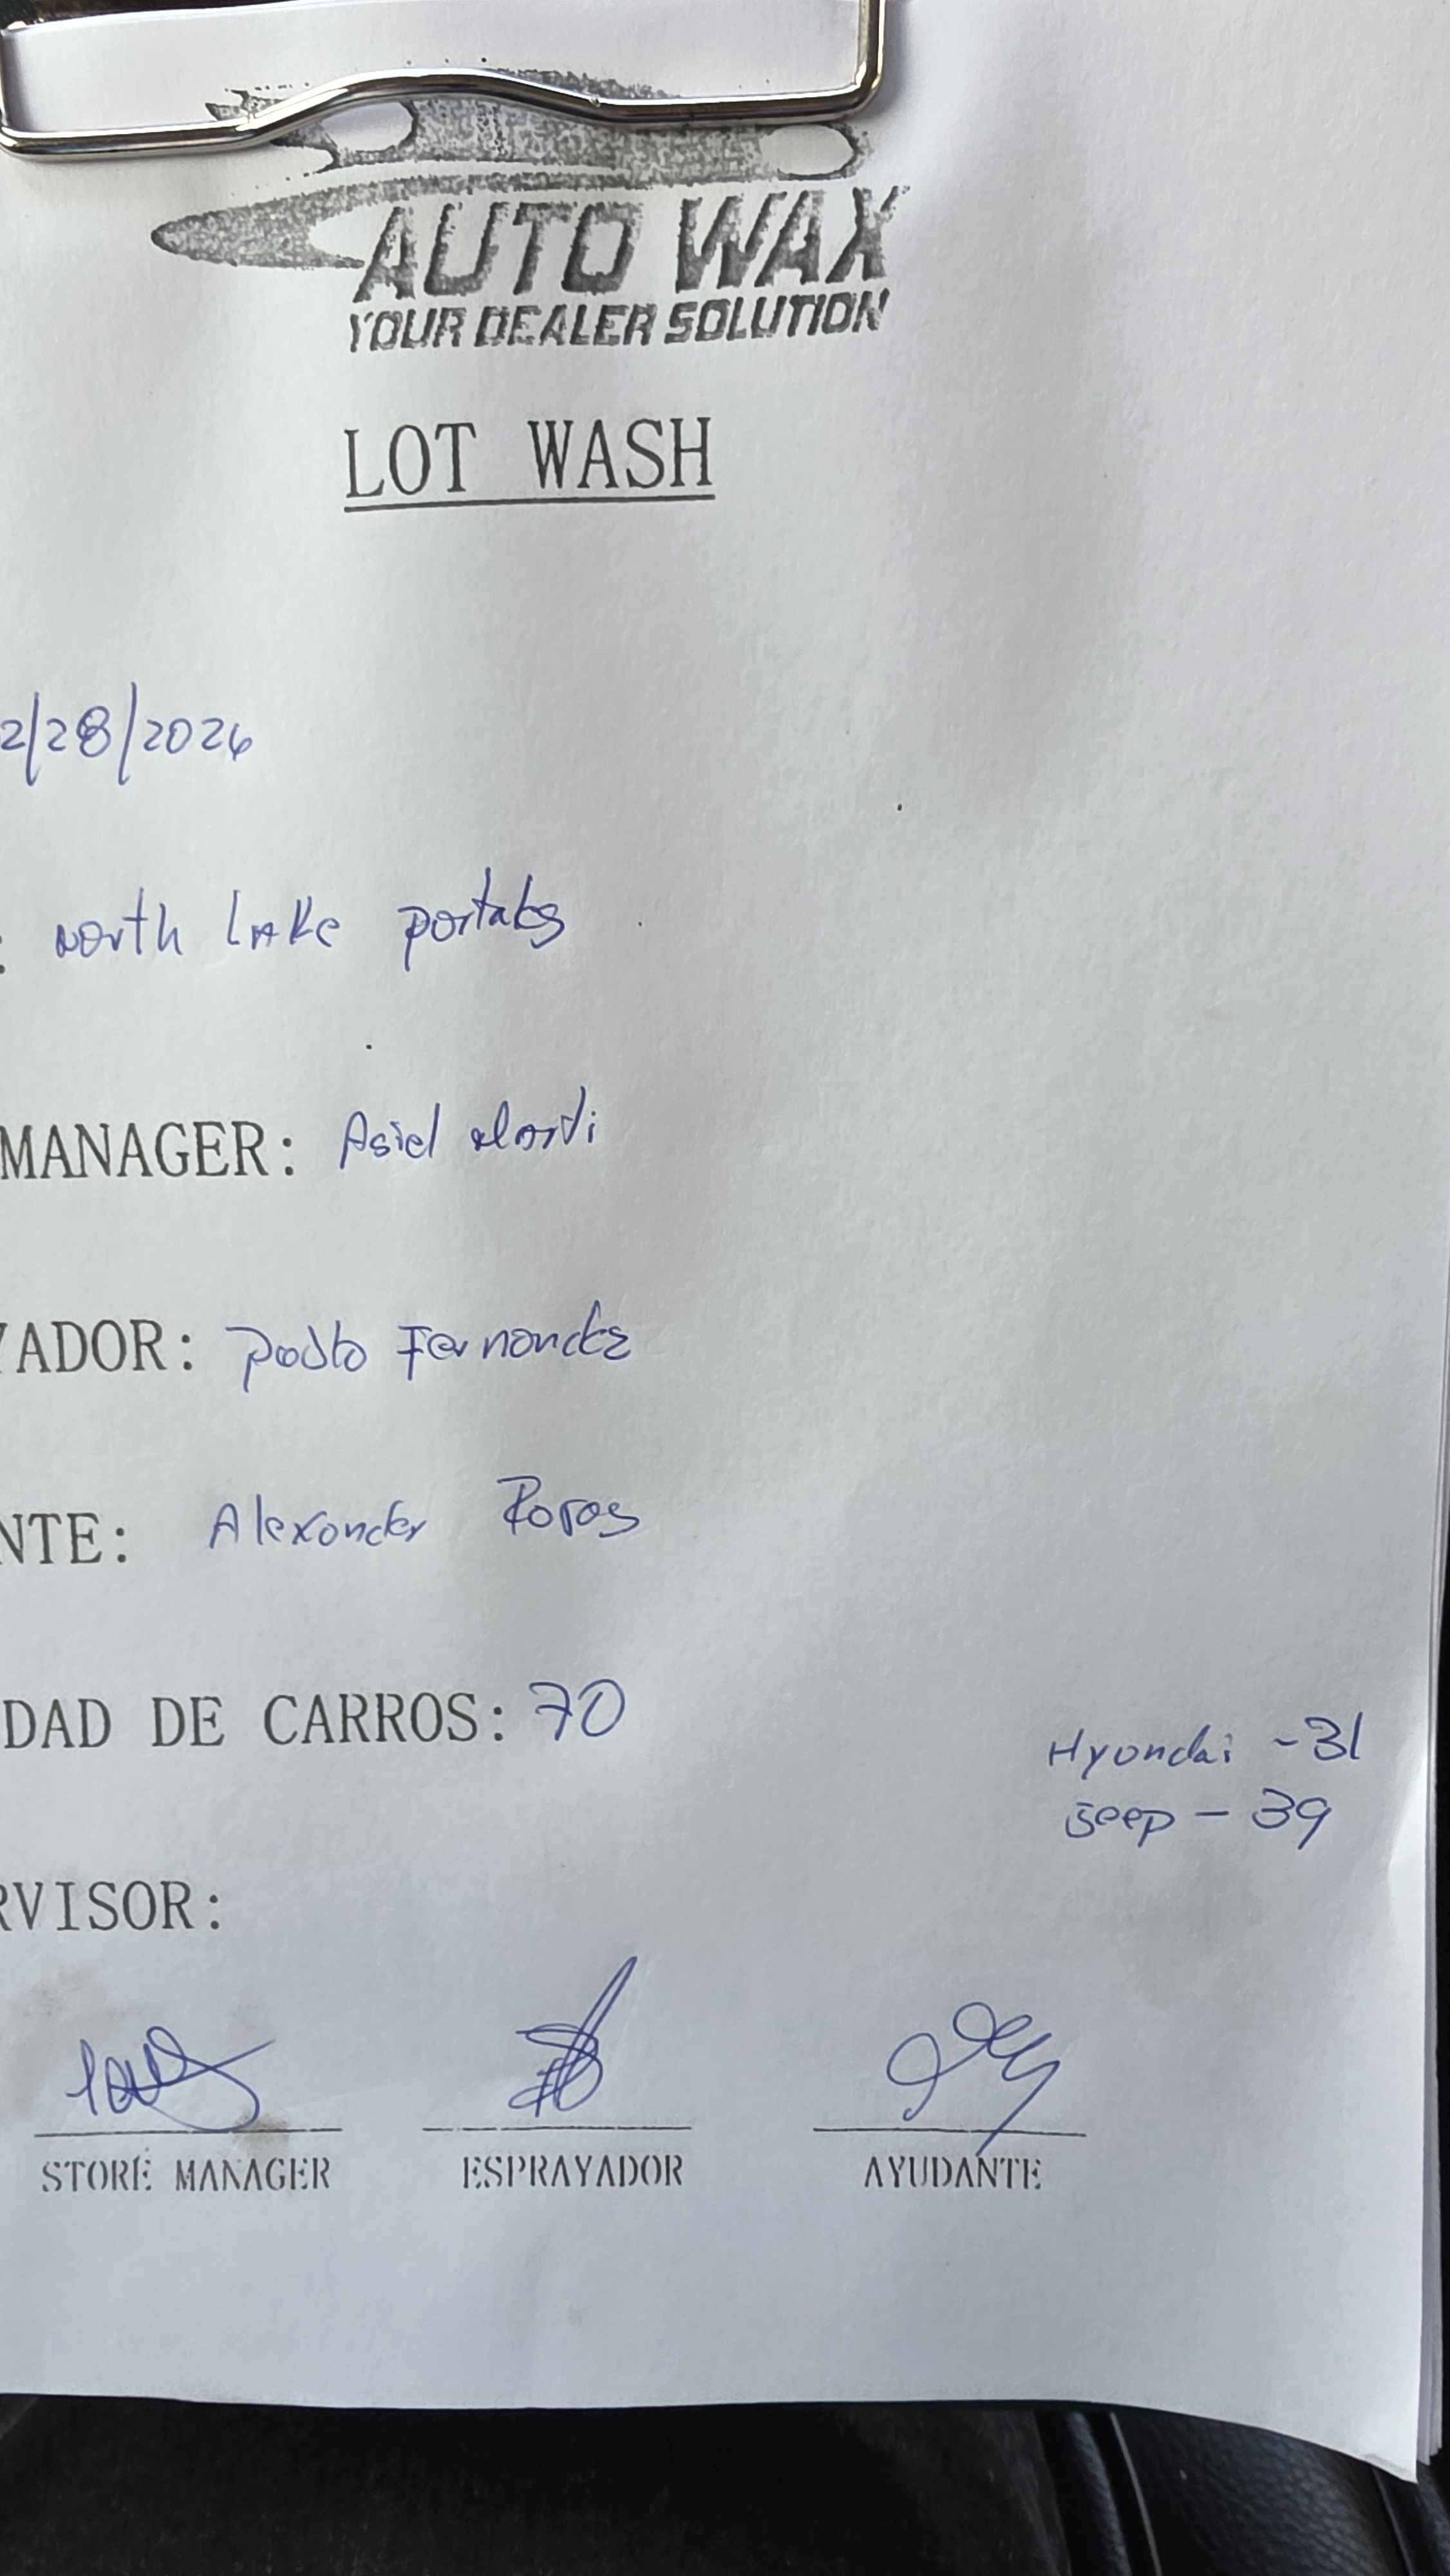 AUTO WAX
YOUR DEALER SOLUTION
LOT WASH
2/28/2026
: north lake
MANAGER: Asiel
YADOR: Pablo Fernandez
NTE: Alexander Rojas
DAD DE CARROS: 70
Hyundai - 31
Jeep - 39
RVISOR:
STORE MANAGER ESPRAYADOR AYUDANTE